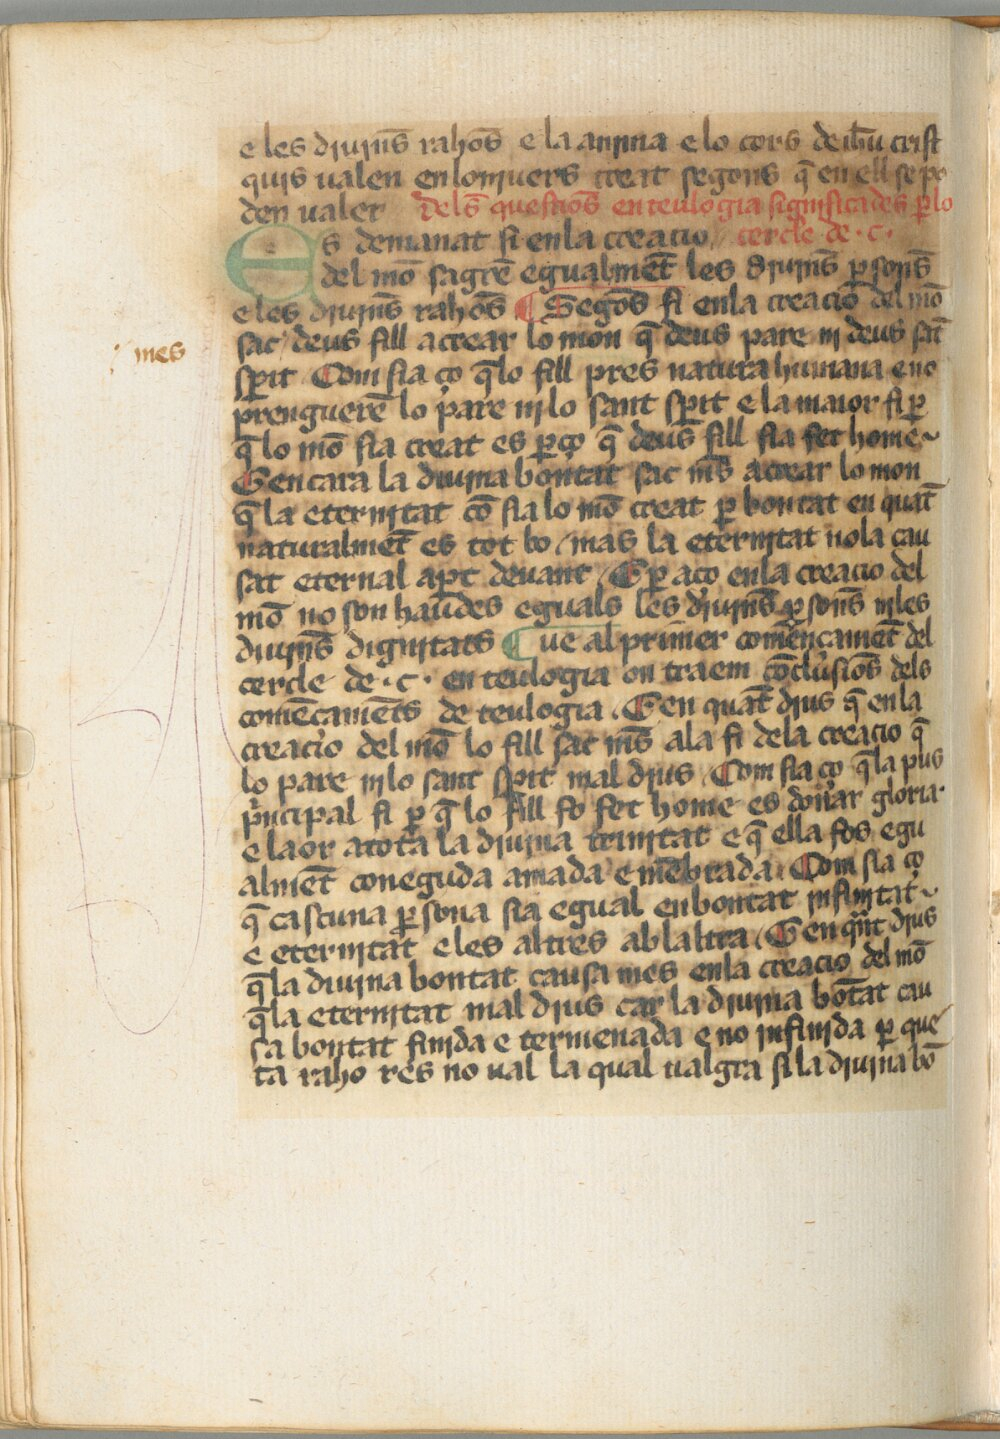 e les diuinẽs rahõs e la anima e lo cors de ihũ crist
quis ualen en lo niuers creat segons q̃ en ell se po
den ualer dels̃ questiõs en teulogia significades ꝑ lo
Es demanat si en la creacio cercle de .c.
del mõ sagrẽ egualmẽt les diuinẽs ꝑsonẽs
e les diuinẽs rahõs ¶ Segõs fi en la creacio del mõ
sac deus fill a crear lo mon q̃ deus pare ni deus sãt
mes
sp̃it Com sia ço q̃ lo fill pres natura humana e no
prenguerẽ lo pare ni lo sant sp̃it e la maior fi ꝑ
q̃ lo mõ sia creat es ꝑ ço q̃ deus fill sia fet home
E encara la diuina bontat sac mẽs a crear lo mon
q̃ la eternitat cõ sia lo mõ creat ꝑ bontat en quãt
naturalmẽt es tot bo / mas la eternitat nola cau
sat eternal apꝛt deuant E ꝑ aço en la creacio del
mõ no son haudes eguals les diuinẽs ꝑsonẽs ni les
diuinẽs dignitats ¶ Ue al primer comẽnçamẽt del
cercle de .c. en teulogia on traem cõclusiõs dels
comẽçamẽts de teulogia . E en quãt dius q̃ en la
creacio del mõ lo fill sac mẽs a la fi de la creacio q̃
lo pare ni lo sant sp̃it mal dius Com sia ço q̃ la pus
p̃ncipal fi ꝑ q̃ lo fill fo fet home es donar gloria
e laor a tota la diuina trinitat e q̃ ella fos egu
almẽt coneguda amada e mẽbrada . Com sia ço
q̃ cascuna ꝑsona sia egual en bontat infinitat
e eternitat e les altres ab laltra E en qũt dius
q̃ la diuina bontat causa mes en la creacio del mõ
q̃ la eternitat mal dius car la diuina bõtat cau
sa bontat finida e termenada e no infinida ꝑ ques
ta raho res no ual la qual ualgra si la diuina bõ